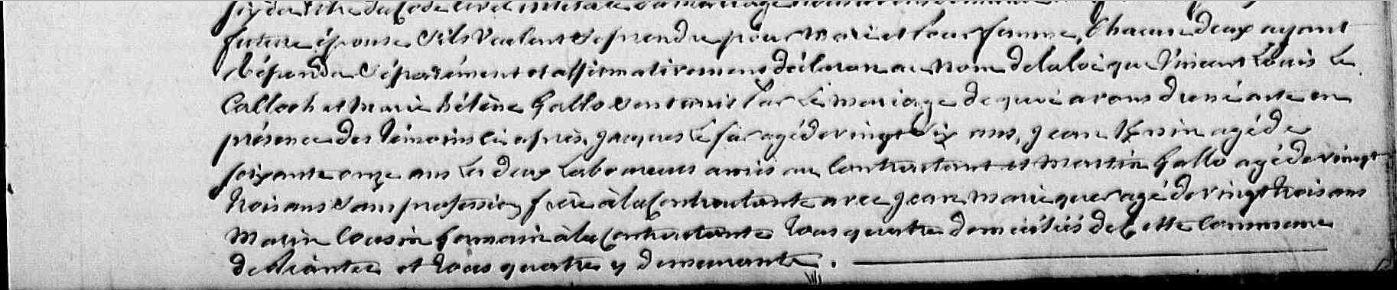 six de titre du Code civil intitulé du mariage
future épouse s'ils veulent se prendre pour mari et pour femme, Chacun deux ayant
répondu séparément et affirmativement déclaron au nom de la loi que Vincent Louis Le
Calloch et Marie hélène Gallo sont unis par le mariage de quoi avons dressé acte en
présence des témoins ci après, jacques Le fur agé de vingt six ans, jean agé de
soixante onze ans les deux Laboureurs amis au Contractant et Martin Gallo agé de vingt
trois ans sans profession frère à la Contractante avec jean marie agé de vingt trois ans
Marin Cousin germain à la Contractante tous quatre domiciliés de Cette Commune
de et tous quatre y demeurante.